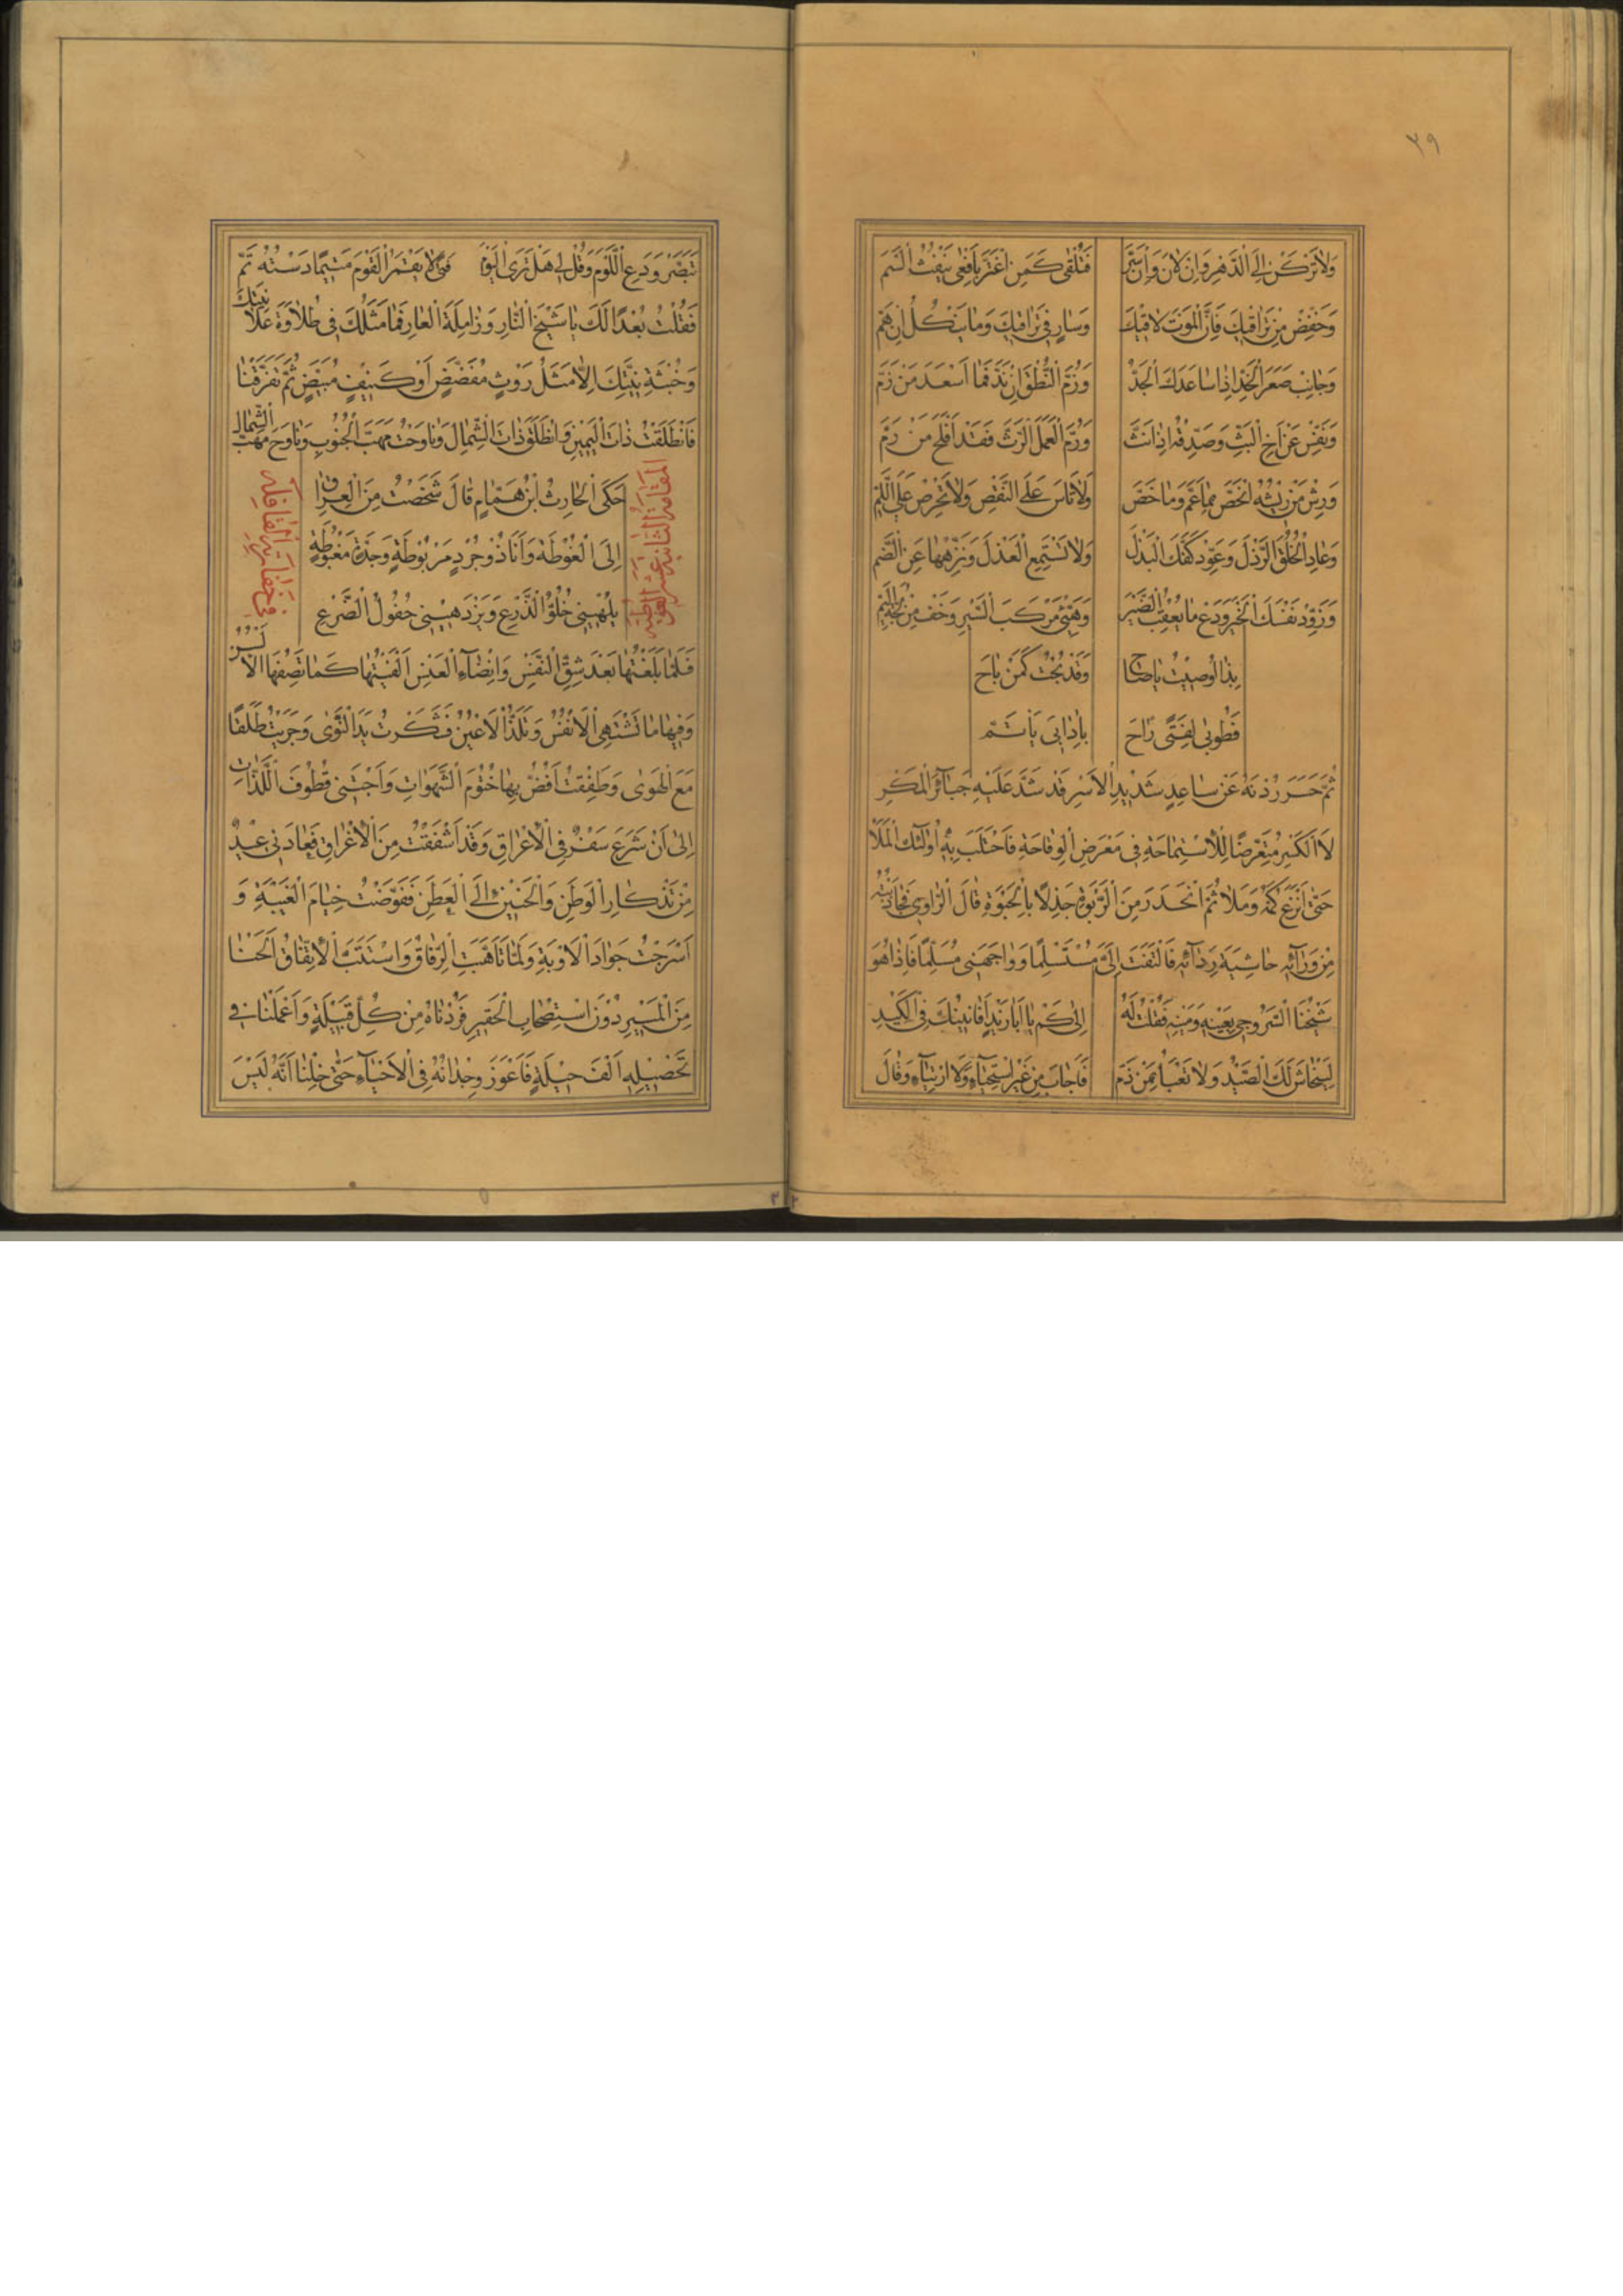 ٣٩
وَلَا تَرْكَنْ اِلَى الدَّهْرِ وَاِنْ لَانَ وَاِنْ سَرَّ فَتُلْفٰى كَمَنِ اغْتَرَّ بِاَفْعٰى تَنْفُثُ السَّمَّ
وَخَفِّضْ مِنْ تَرَاقِيكَ فَاِنَّ الْمَوْتَ لَاقِيكَ وَسَارٍ فِي تَرَاقِيكَ وَمَا يَنْكُلُ اِنْ هَمَّ
وَجَانِبْ صَعَرَ الْخَدِّ اِذَا سَاعَدَكَ الْجَدُّ وَزُمَّ النُّطْقَ اِنْ نَدَّ فَمَا اَسْعَدَ مَنْ زَمَّ
وَنَفِّسْ عَنْ اَخِي الْبَثِّ وَصَدِّقْهُ اِذَا نَثَّ وَرُمَّ الْعَمَلَ الرَّثَّ فَقَدْ اَفْلَحَ مَنْ رَمَّ
وَرِشْ مَنْ رِيشُهُ انْحَصَّ بِمَا عَمَّ وَمَا خَصَّ وَلَا تَاْسَ عَلَى النَّقْصِ وَلَا تَحْرِصْ عَلَى اللَّمِّ
وَعَادِ الْخُلُقَ الرَّذْلَ وَعَوِّدْ كَفَّكَ الْبَذْلَ وَلَا تَسْتَمِعِ الْعَذْلَ وَنَزِّهْهَا عَنِ الضَّمِّ
وَزَوِّدْ نَفْسَكَ الْخَيْرَ وَدَعْ مَا يُعْقِبُ الضَّيْرَ وَهَيِّئْ مَرْكَبَ السَّيْرِ وَخَفْ مِنْ لُجَّةِ الْيَمِّ
بِذَا اُوصِيتُ يَا صَاحِ وَقَدْ بُحْتُ كَمَنْ بَاحَ
فَطُوبٰى لِفَتًى رَاحَ بِاٰدَابِيَ يَأْتَمُّ
ثُمَّ حَسَرَ رُدْنَهُ عَنْ سَاعِدٍ شَدِيدِ الْاَسْرِ قَدْ شَدَّ عَلَيْهِ جَبَائِرَ الْمَكْرِ
لَا الْكَسْرِ مُتَعَرِّضًا لِلْاِسْتِمَاحَةِ فِي مَعْرِضِ الْوَقَاحَةِ فَاخْتَلَبَ بِهِ اُولٰئِكَ الْمَلَأَ
حَتّٰى اَتْرَعَ كُمَّهُ وَمَلَأَ ثُمَّ انْحَدَرَ مِنَ الرَّبْوَةِ جَذِلًا بِالْحَبْوَةِ قَالَ الرَّاوِي فَجَاذَبْتُهُ
مِنْ وَرَائِهِ حَاشِيَةَ رِدَائِهِ فَالْتَفَتَ اِلَيَّ مُسْتَسْلِمًا وَوَاجَهَنِي مُسَلِّمًا فَاِذَا هُوَ
شَيْخُنَا السَّرُوجِيُّ بِعَيْنِهِ وَمَيْنِهِ فَقُلْتُ لَهُ اِلٰى كَمْ يَا اَبَا زَيْدٍ اَفَانِينُكَ فِي الْكَيْدِ
لِيَنْحَاشَ لَكَ الصَّيْدُ وَلَا تَعْبَأُ بِمَنْ ذَمَّ فَاَجَابَ مِنْ غَيْرِ اسْتِحْيَاءٍ وَلَا ارْتِيَاءٍ وَقَالَ
تَبَصَّرْ وَدَعِ اللَّوْمَ وَقُلْ لِي هَلْ تَرَى الْيَوْمَ فَتًى لَا يَقْمُرُ الْقَوْمَ مَتٰى مَا دَسْتُهُ تَمَّ
فَقُلْتُ بُعْدًا لَكَ يَا شَيْخَ النَّارِ وَزَامِلَةَ الْعَارِ فَمَا مَثَلُكَ فِي طُلَاوَةِ عَلَانِيَتِكَ
وَخُبْثَةِ نِيَّتِكَ اِلَّا مَثَلُ رَوْثٍ مُفَضَّضٍ اَوْ كَنِيفٍ مُبَيَّضٍ ثُمَّ تَفَرَّقْنَا
فَانْطَلَقْتُ ذَاتَ الْيَمِينِ وَانْطَلَقَ ذَاتَ الشِّمَالِ وَنَاوَحْتُ مَهَبَّ الْجَنُوبِ وَنَاوَحَ مَهَبَّ الشَّمَالِ
الْمَقَامَةُ الثَّانِيَةَ عَشْرَةَ الْغُوطِيَّةُ
حَكَى الْحَارِثُ بْنُ هَمَّامٍ قَالَ شَخَصْتُ مِنَ الْعِرَاقِ
اِلَى الْغُوطَةِ وَاَنَا ذُو جُرْدٍ مَرْبُوطَةٍ وَجِدَةٍ مَغْبُوطَةٍ
يُلْهِينِي خُلُوُّ الذَّرْعِ وَيَزْدَهِينِي حُفُولُ الضَّرْعِ
فِي خِفَارَةِ الْقَافِلَةِ
فَلَمَّا بَلَغْتُهَا بَعْدَ شِقِّ النَّفْسِ وَاِنْضَاءِ الْعَنْسِ اَلْفَيْتُهَا كَمَا تَصِفُهَا الْاَلْسُنُ
وَفِيهَا مَا تَشْتَهِي الْاَنْفُسُ وَتَلَذُّ الْاَعْيُنُ فَشَكَرْتُ يَدَ النَّوٰى وَجَرَيْتُ طَلَقًا
مَعَ الْهَوٰى وَطَفِقْتُ اَفُضُّ بِهَا خُتُومَ الشَّهَوَاتِ وَاَجْتَنِي قُطُوفَ اللَّذَّاتِ
اِلٰى اَنْ شَرَعَ سَفْرٌ فِي الْاِعْرَاقِ وَقَدْ اَشْفَقْتُ مِنَ الْاِغْرَاقِ فَعَادَنِي عِيدٌ
مِنْ تَذْكَارِ الْوَطَنِ وَالْحَنِينِ اِلَى الْعَطَنِ فَقَوَّضْتُ خِيَامَ الْغَيْبَةِ وَ
اَسْرَجْتُ جَوَادَ الْاَوْبَةِ وَلَمَّا تَاَهَّبَتِ الرِّفَاقُ وَاسْتَتَبَّ الْاِتِّفَاقُ اَلَحْنَا
مِنَ الْمَسِيرِ دُونَ اسْتِصْحَابِ الْخَفِيرِ فَرُدْنَاهُ مِنْ كُلِّ قَبِيلَةٍ وَاَعْمَلْنَا فِي
تَحْصِيلِهِ اَلْفَ حِيلَةٍ فَاَعْوَزَ وِجْدَانُهُ فِي الْاَحْيَاءِ حَتّٰى خِلْنَا اَنَّهُ لَيْسَ